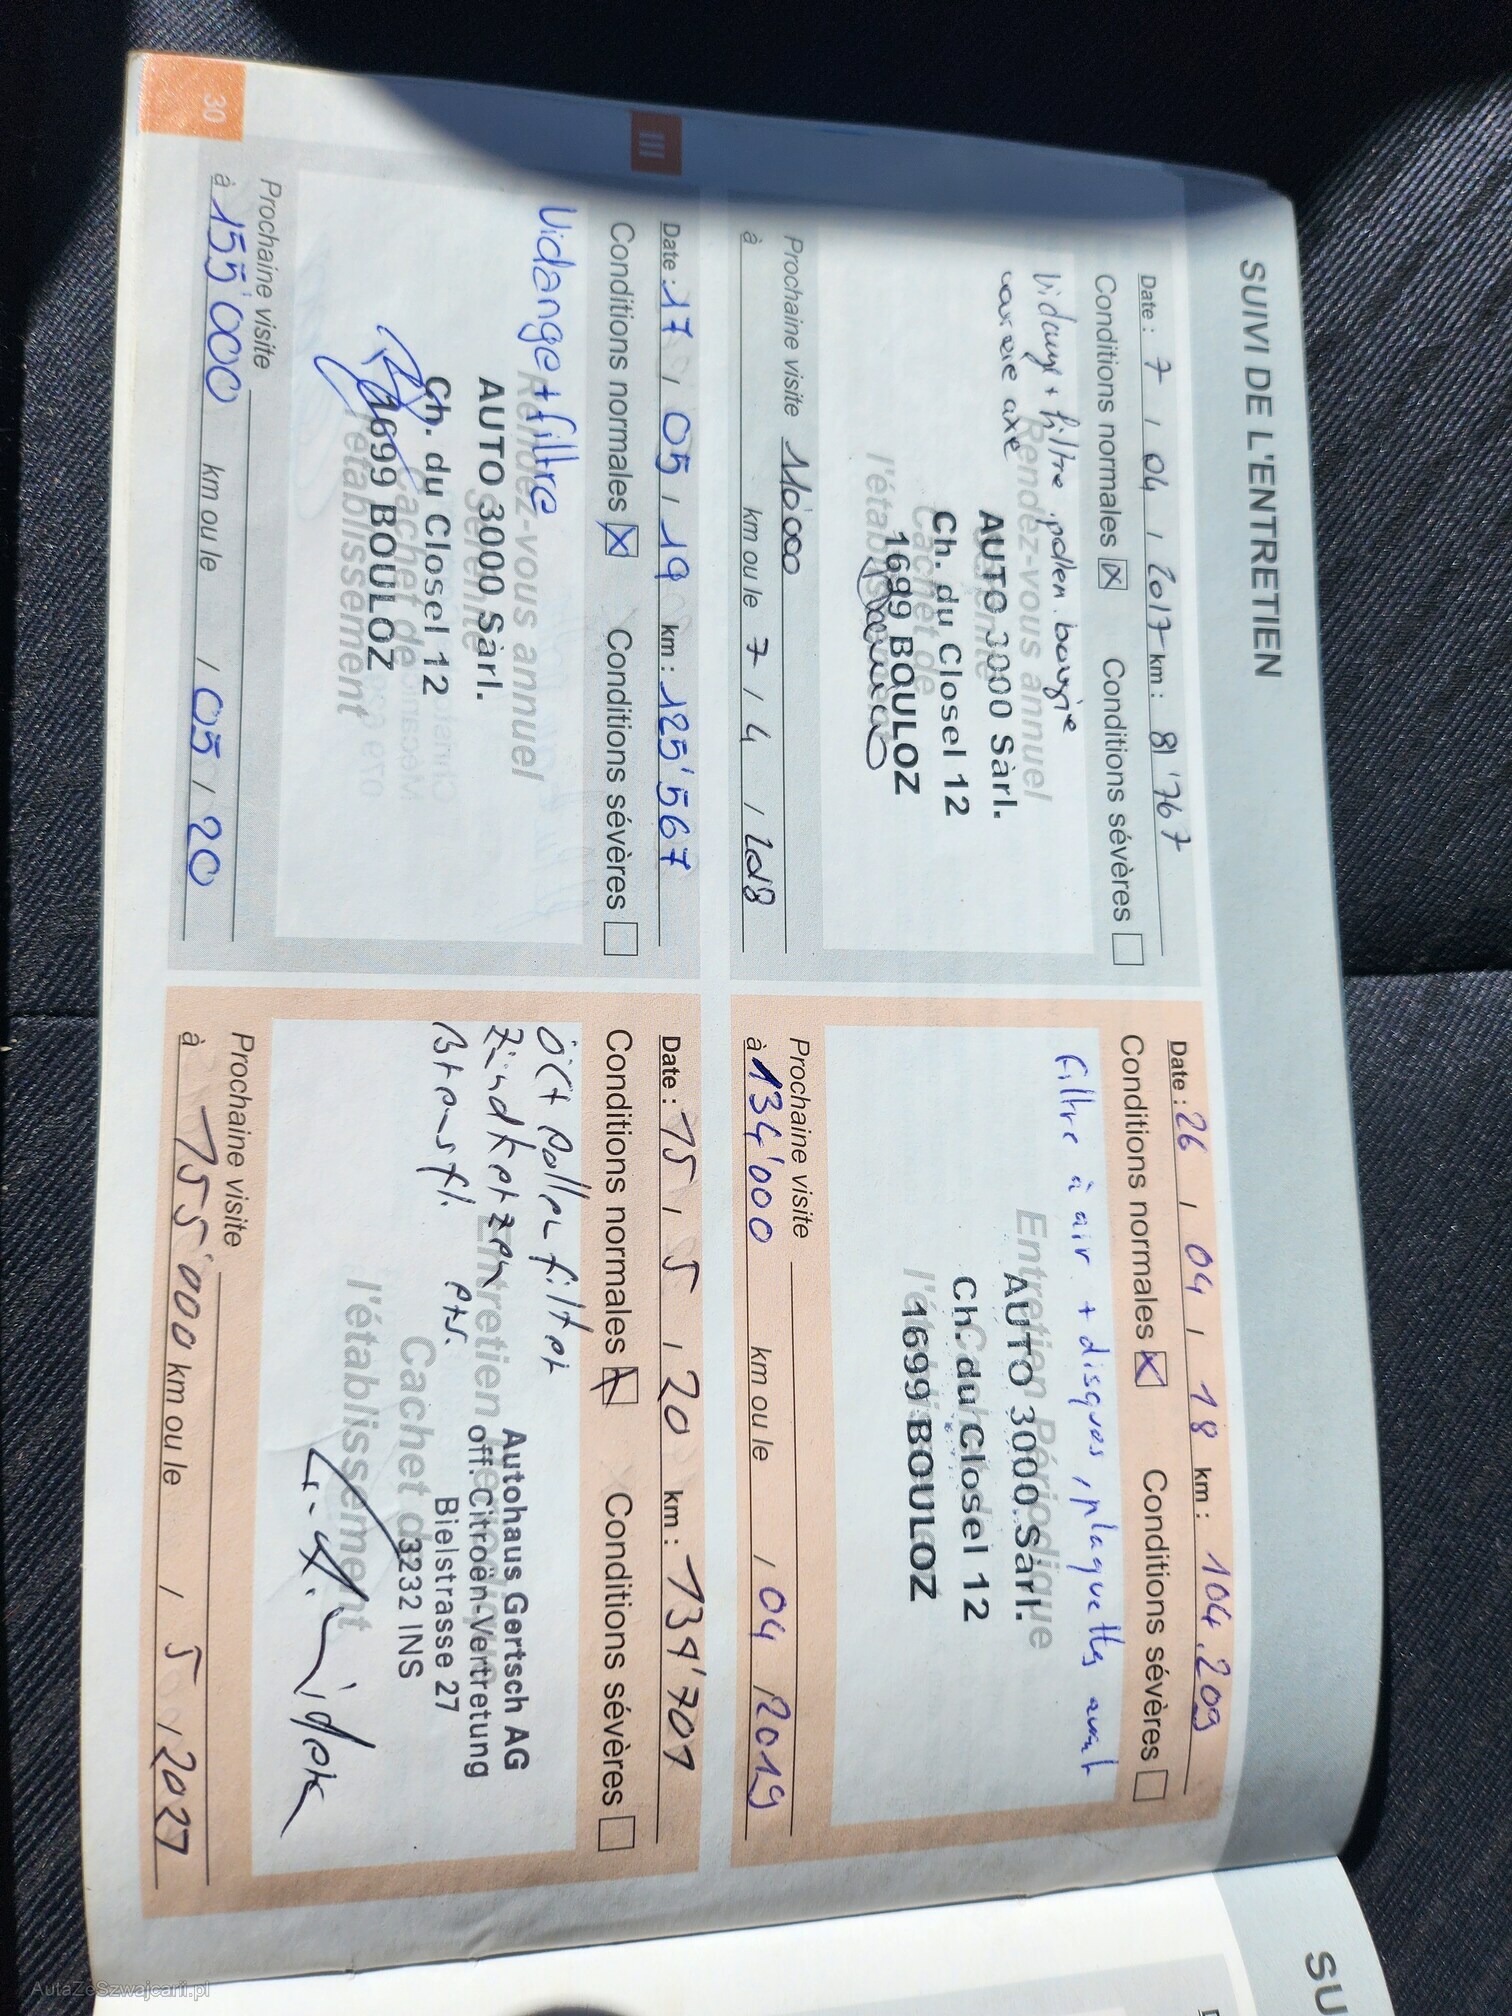 SUIVI DE L'ENTRETIEN
Date : 7 / 04 / 2017 km : 81'767
Conditions normales ☒ Conditions sévères ☐
Vidange + filtre, pollen, bougie
Rendez-vous annuel
AUTO 3000 Sàrl.
Cachet de
Ch. du Closel 12
1699 BOULOZ
Prochaine visite 110'000
à km ou le 7 / 4 / 2018
Date : 26 / 04 / 18 km : 104.209
Conditions normales ☒ Conditions sévères ☐
filtre à air + disques, plaquettes avant
Entretien Périodique
AUTO 3000 Sàrl.
Ch. du Closel 12
1699 BOULOZ
Prochaine visite
à 134'000 km ou le / 04 / 2019
III
Date : 17 / 05 / 19 km : 125'567
Conditions normales ☒ Conditions sévères ☐
Vidange + filtre
Rendez-vous annuel
Sérénité
AUTO 3000 Sàrl.
Cachet de
Ch. du Closel 12
l'établissement
1699 BOULOZ
Prochaine visite
à 155'000 km ou le / 05 / 20
Date : 15 / 5 / 20 km : 139'701
Conditions normales ☒ Conditions sévères ☐
Pollenfilter
Zündkerzen
Bremsfl.
Entretien
Autohaus Gertsch AG
off. Citroën-Vertretung
Bielstrasse 27
3232 INS
Cachet de
l'établissement
Prochaine visite
à 155'000 km ou le / 5 / 2021
30
SU
AutaZeSzwajcarii.pl